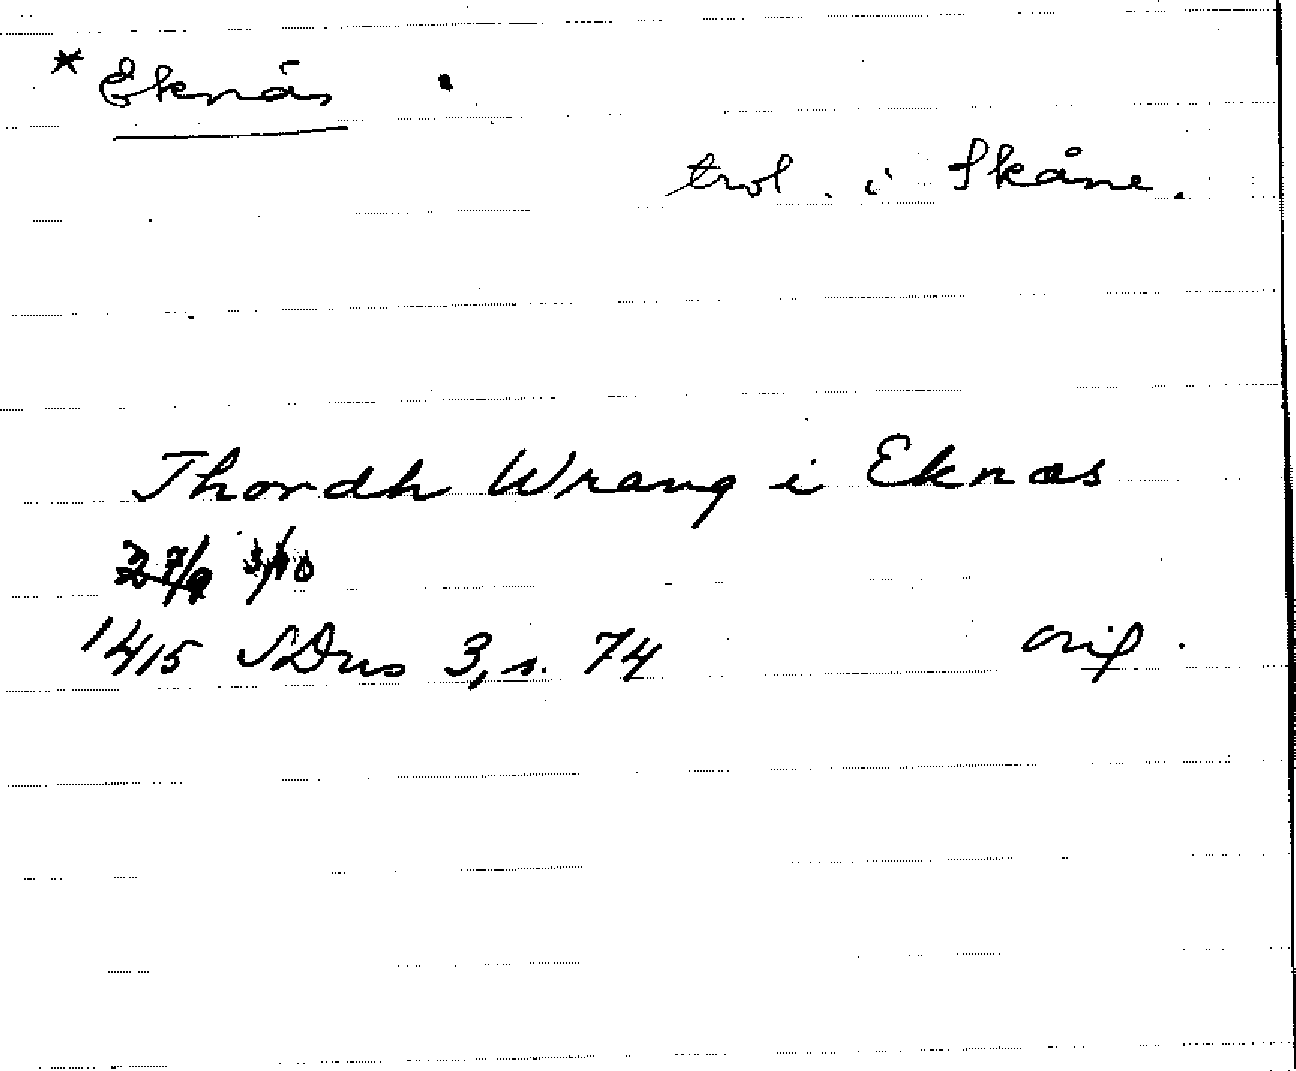 * Eknäs
trol. i Skåne.
Thordh Wrang i Eknæs
27/9 3/10
1415 SDns 3, s. 74 orig.